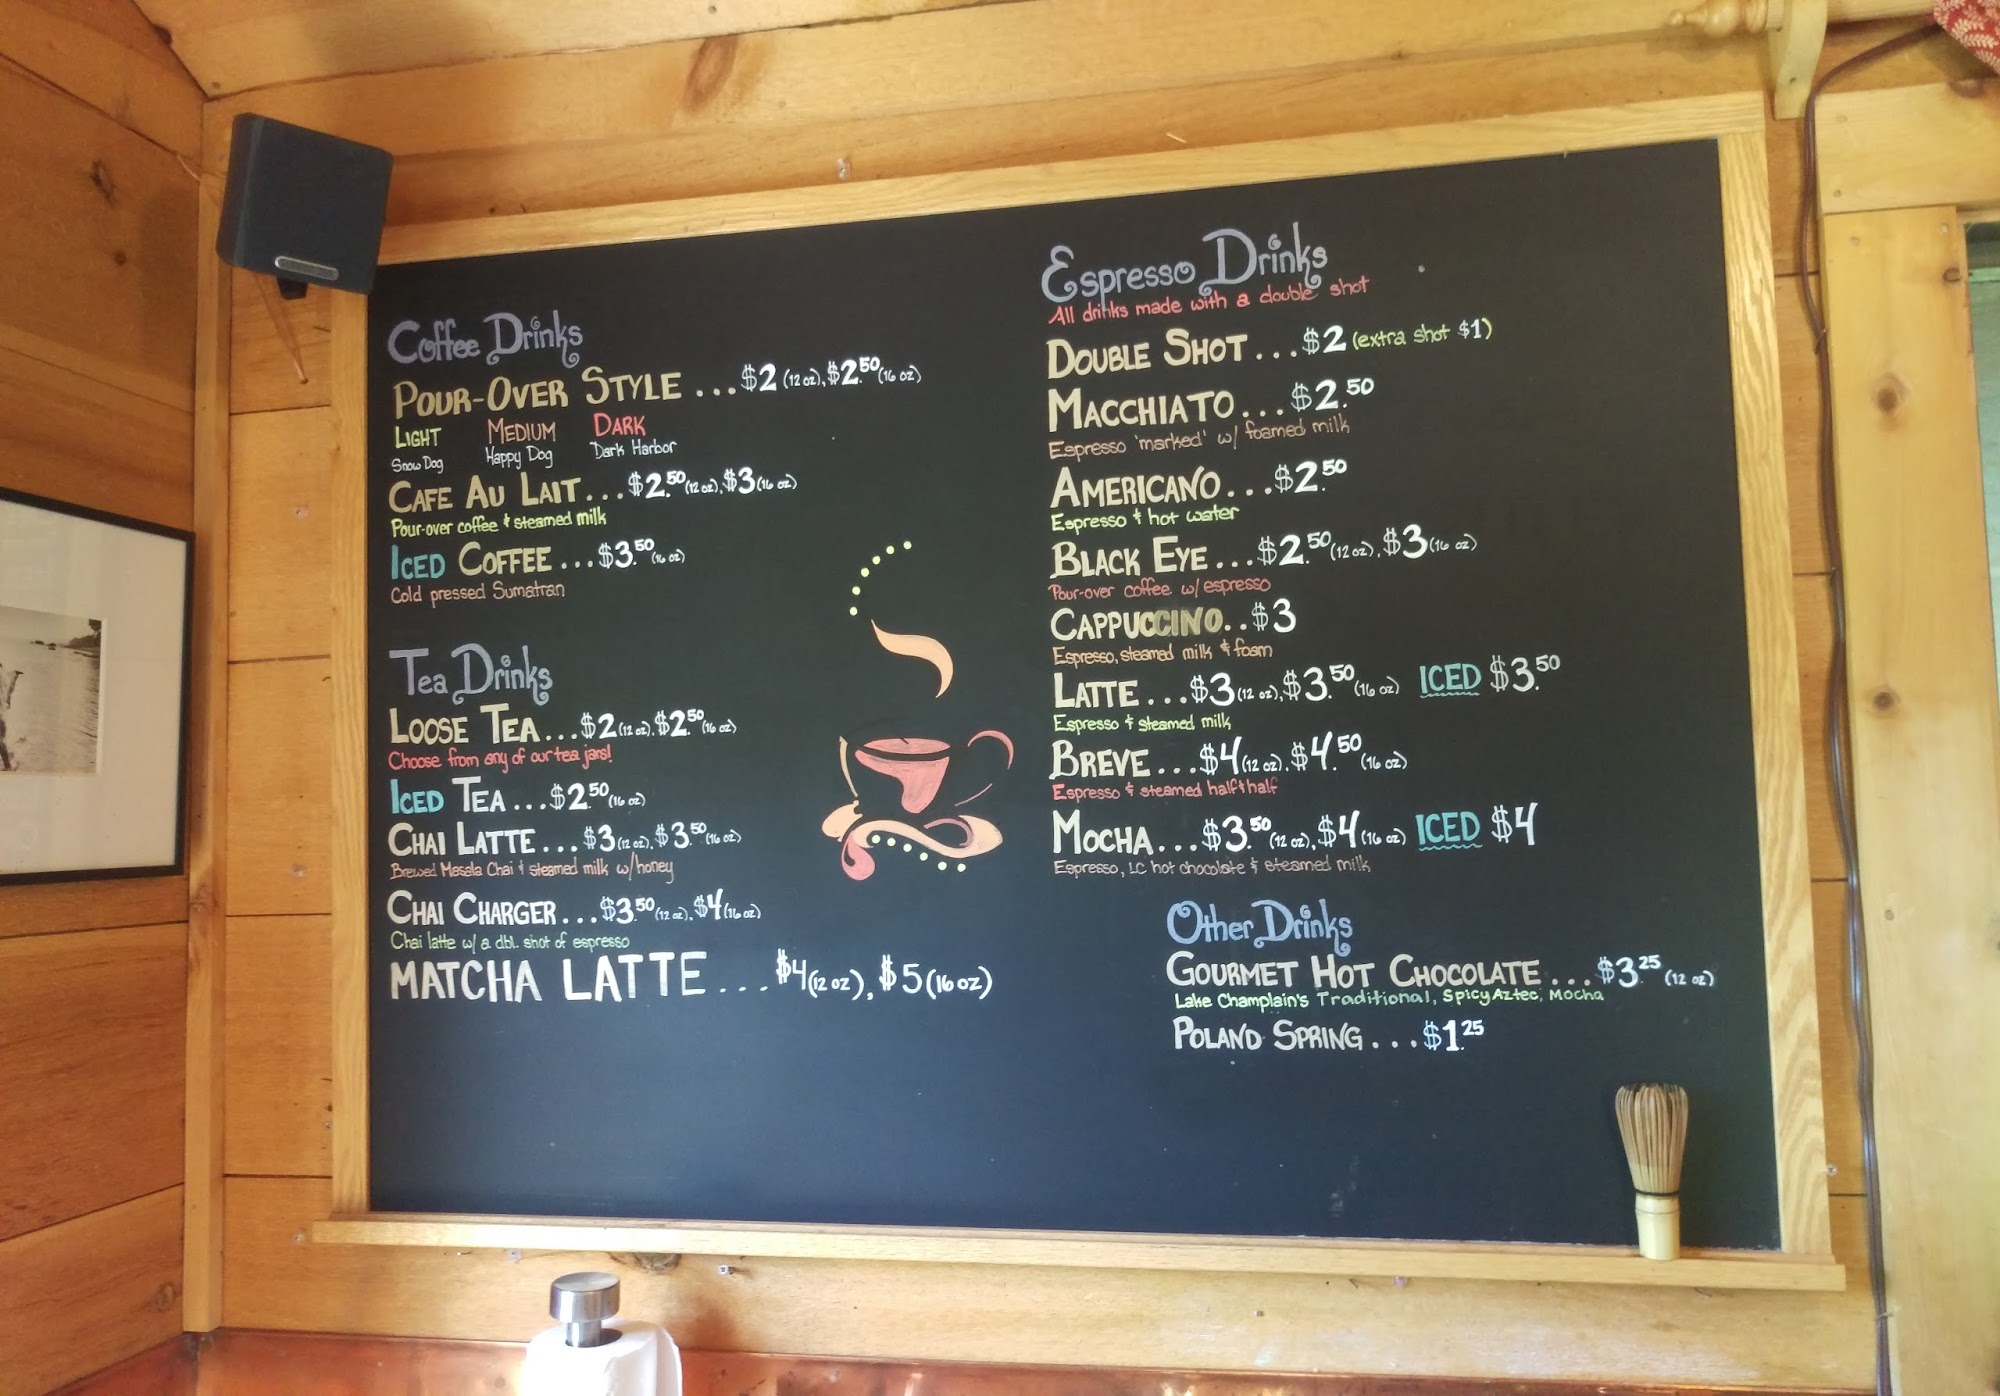 Coffee Drinks
POUR-OVER STYLE ... $2 (12 oz), $2.50 (16 oz)
LIGHT MEDIUM DARK
Snow Dog Happy Dog Dark Harbor
CAFE AU LAIT ... $2.50 (12 oz), $3 (16 oz)
Pour-over coffee & steamed milk
ICED COFFEE ... $3.50 (16 oz)
Cold pressed Sumatran
Tea Drinks
LOOSE TEA ... $2 (12 oz), $2.50 (16 oz)
Choose from any of our tea jars!
ICED TEA ... $2.50 (16 oz)
CHAI LATTE ... $3 (12 oz), $3.50 (16 oz)
Brewed Masala Chai & steamed milk w/ honey
CHAI CHARGER ... $3.50 (12 oz), $4 (16 oz)
Chai latte w/ a dbl. shot of espresso
MATCHA LATTE ... $4 (12 oz), $5 (16 oz)
Espresso Drinks
All drinks made with a double shot
DOUBLE SHOT ... $2 (extra shot $1)
MACCHIATO ... $2.50
Espresso 'marked' w/ foamed milk
AMERICANO ... $2.50
Espresso & hot water
BLACK EYE ... $2.50 (12 oz), $3 (16 oz)
Pour-over coffee w/ espresso
CAPPUCCINO .. $3
Espresso, steamed milk & foam
LATTE ... $3 (12 oz), $3.50 (16 oz) ICED $3.50
Espresso & steamed milk
BREVE ... $4 (12 oz), $4.50 (16 oz)
Espresso & steamed half & half
MOCHA ... $3.50 (12 oz), $4 (16 oz) ICED $4
Espresso, LC hot chocolate & steamed milk
Other Drinks
GOURMET HOT CHOCOLATE ... $3.25 (12 oz)
Lake Champlain's Traditional, Spicy Aztec, Mocha
POLAND SPRING ... $1.25